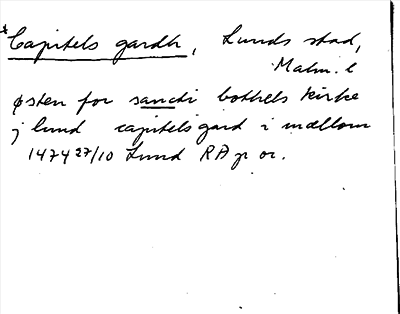 *Capitels gardh, Lunds stad,
Malm. l
østen for sancti bothels kirke
j lund capitels gard i mellom
1474 27/10 Lund RA p or.